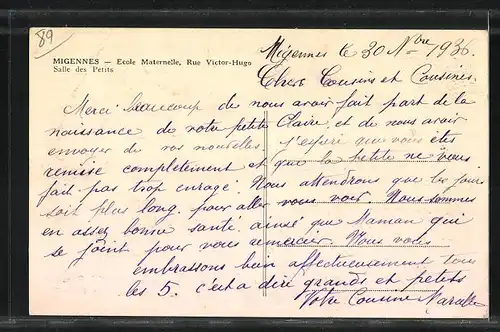 89
MIGENNES — Ecole Maternelle, Rue Victor-Hugo
Salle des Petits
Migennes le 30 Nbre 1936
Chers Cousins et Cousines.
Merci beaucoup de nous avoir fait part de la
naissance de votre petite Claire, et de nous avoir
envoyer de vos nouvelles. j'espère que vous êtes
remise complètement et que la petite ne vous
fait pas trop enragé. Nous attendrons que les jours
soit plus long pour aller vous voir. Nous sommes
en assez bonne santé ainsi que Maman qui
se joint pour vous remercier. Nous vous
embrassons bien affectueusement tous
les 5. c'est a dire grands et petits
Votre Cousine Marcelle